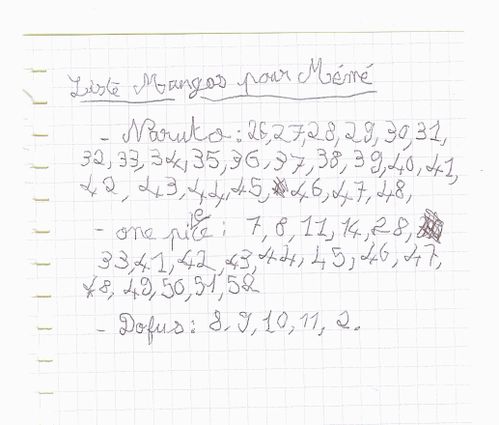 Liste Mangas pour Mémé
- Naruto : 26, 27, 28, 29, 30, 31,
32, 33, 34, 35, 36, 37, 38, 39, 40, 41,
42, 43, 44, 45, 46, 47, 48,
- one piece : 7, 8, 11, 14, 28,
33, 41, 42, 43, 44, 45, 46, 47,
48, 49, 50, 51, 52
- Dofus : 8. 9, 10, 11, 2.